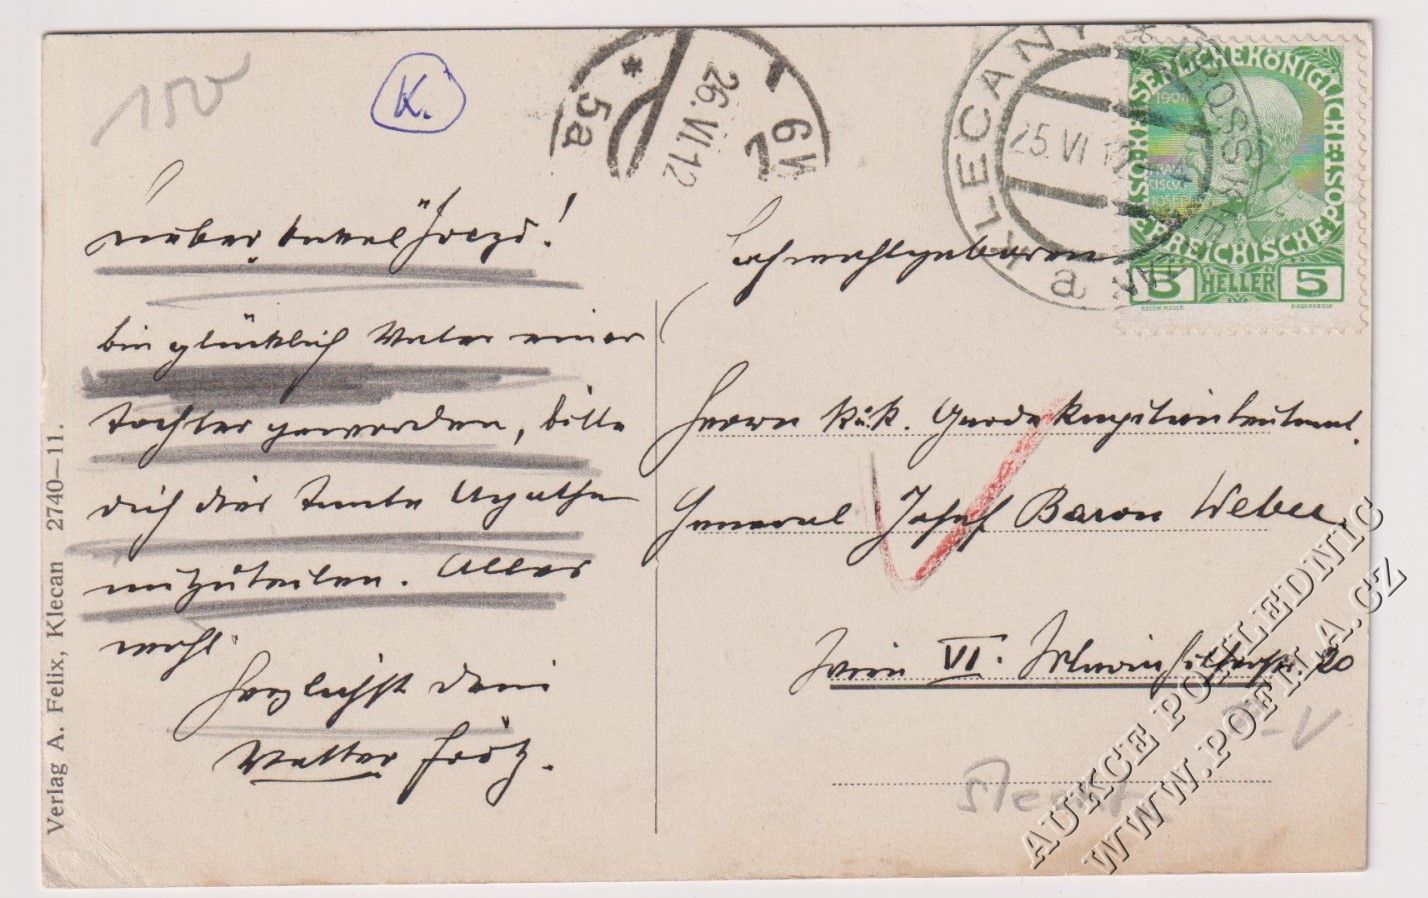 150
K.
* 5a
26.VI.12
6 N
KLECANY * GROSS KLE
25.VI.12
a
KAISERLICHEKÖNIGLICHE
ÖSTERREICHISCHE POST
1908
FRANZ
JOSEF
5 HELLER 5
Lieber Onkel Josef!
bin glücklich Vater einer
Tochter geworden, bitte
dich dies Tante Agathe
mitzuteilen. Alles
wohl.
Herzlichst dein
Vetter Fritz.
Verlag A. Felix, Klecan 2740—11.
Hochwohlgeboren
Herrn k.u.k. Gardekapitänleutnant
General Josef Baron Weber
Wien VI. 20
AUKCE POHLEDNIC
WWW.POEHLA.CZ